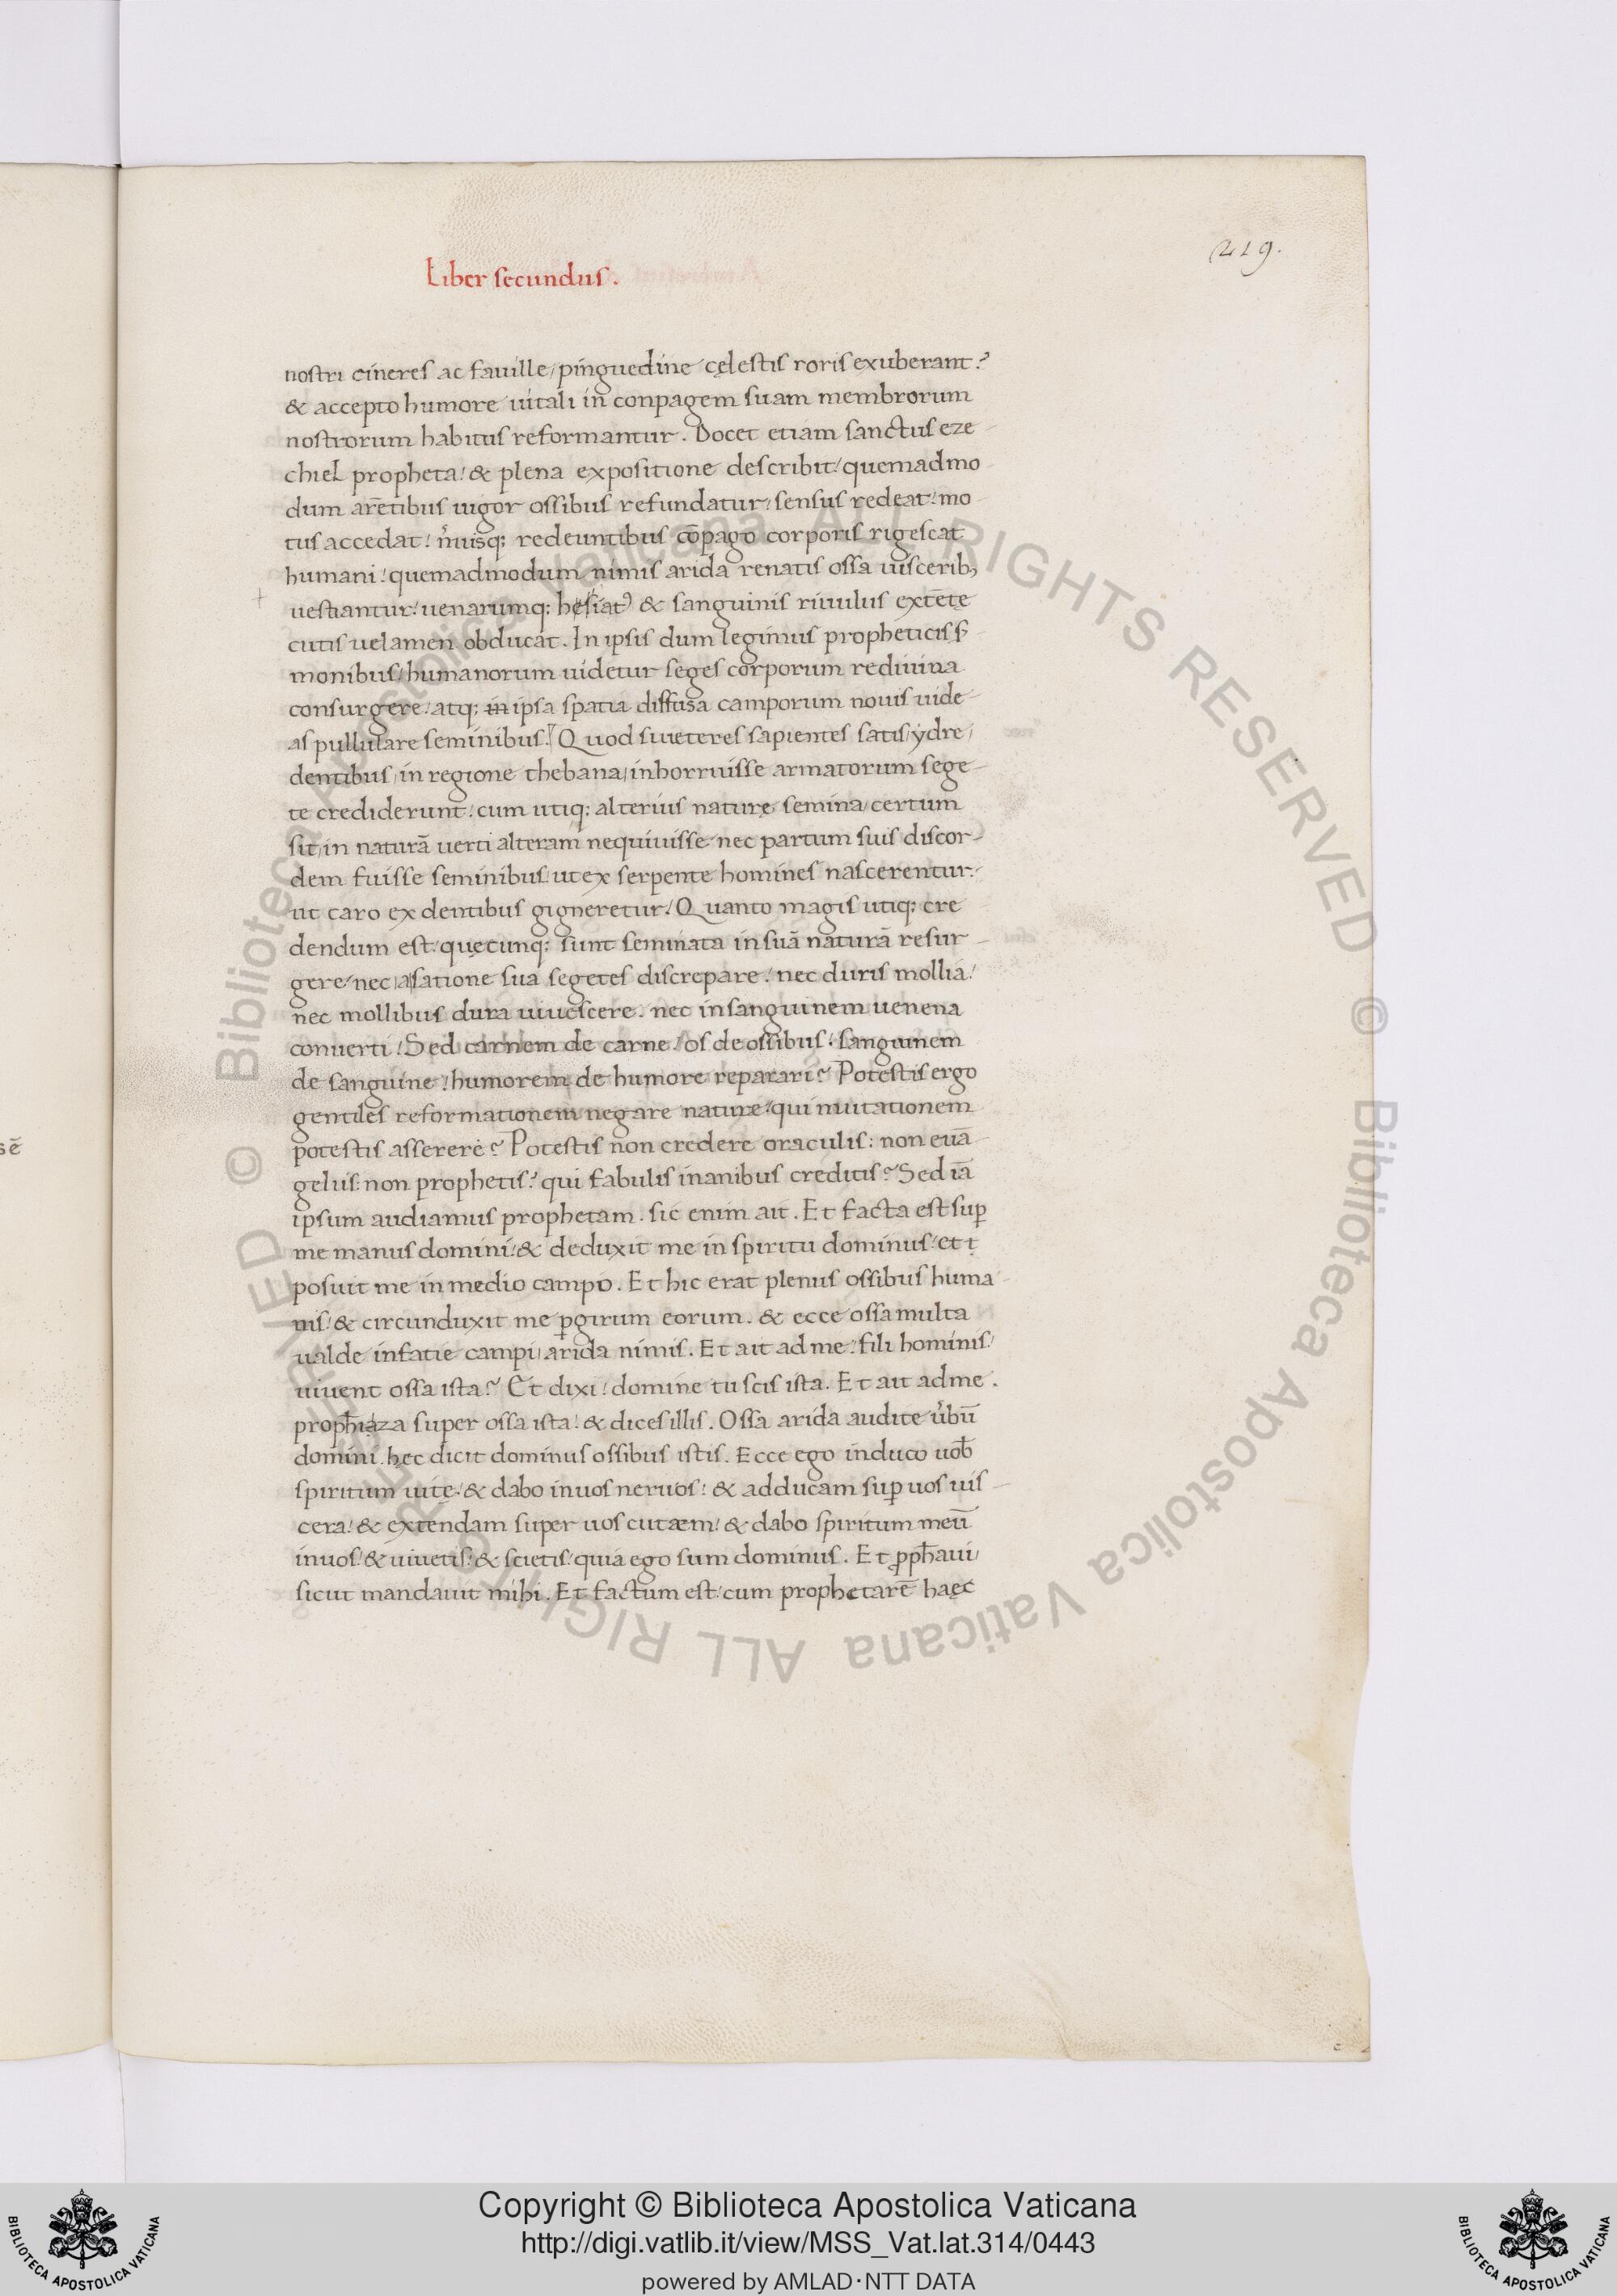 219.
Liber secundus.
nostri cineres ac fauille, pinguedine cęlestis roris exuberant?
& accepto humore uitali in conpagem suam membrorum
nostrorum habitus reformantur. Docet etiam sanctus eze-
chiel propheta! & plena expositione describit, quemadmo
dum arētibus uigor ossibus refundatur, sensus redeat! mo-
tus accedat! n̓uisq; redeuntibus cōpago corporis rigescat
humani! quemadmodum nimis arida renatis ossa uiscerib;
uestiantur! uenarumq; & sanguinis riuulus extēte
cutis uelamen obducat. In ipsis dum legimus propheticis s̓-
monibus, humanorum uidetur seges corporum rediuiua
consurgere! atq; in ipsa spatia diffusa camporum nouis uide-
as pullulare seminibus. Quod si ueteres sapientes satis, ydre,
dentibus, in regione thebana, inhorruisse armatorum sege-
te crediderunt! cum utiq; alterius naturę semina certum
sit, in naturā uerti alteram nequiuisse, nec partum suis discor-
dem fuisse seminibus, ut ex serpente homines nascerentur!
ut caro ex dentibus gigneretur! Quanto magis utiq; cre
dendum est, quęcunq; sunt seminata in suā naturā resur-
gere, nec a satione sua segetes discrepare! nec duris mollia!
nec mollibus dura uiuescere. nec in sanguinem uenena
conuerti! Sed carnem de carne! os de ossibus! sanguinem
de sanguine! humorem de humore reparari? Potestis ergo
gentiles reformationem negare naturę, qui mutationem
potestis asserere? Potestis non credere oraculis: non euā-
geliis: non prophetis? qui fabulis inanibus creditis? Sed iā
ipsum audiamus prophetam. sic enim ait. Et facta est sup̱
me manus domini! & deduxit me in spiritu dominus! et
posuit me in medio campo. Et hic erat plenus ossibus huma-
nis! & circunduxit me p̱girum eorum. & ecce ossa multa
ualde in fatie campi, arida nimis. Et ait ad me! fili hominis!
uiuent ossa ista? Et dixi! domine tu scis ista. Et ait ad me.
proph̄iza super ossa ista! & dices illis. Ossa arida audite u̓bū
domini. hęc dicit dominus ossibus istis. Ecce ego induco uob̄
spiritum uitę! & dabo in uos neruos! & adducam sup̱ uos uis-
cera! & extendam super uos cutem! & dabo spiritum meū
in uos! & uiuetis! & scietis, quia ego sum dominus. Et pph̄aui,
sicut mandauit mihi. Et factum est, cum prophetarē haec
sē
Copyright © Biblioteca Apostolica Vaticana
http://digi.vatlib.it/view/MSS_Vat.lat.314/0443
powered by AMLAD·NTT DATA
BIBLIOTECA APOSTOLICA VATICANA
BIBLIOTECA APOSTOLICA VATICANA
© Biblioteca Apostolica Vaticana ALL RIGHTS RESERVED © Biblioteca Apostolica Vaticana ALL RIGHTS RESERVED